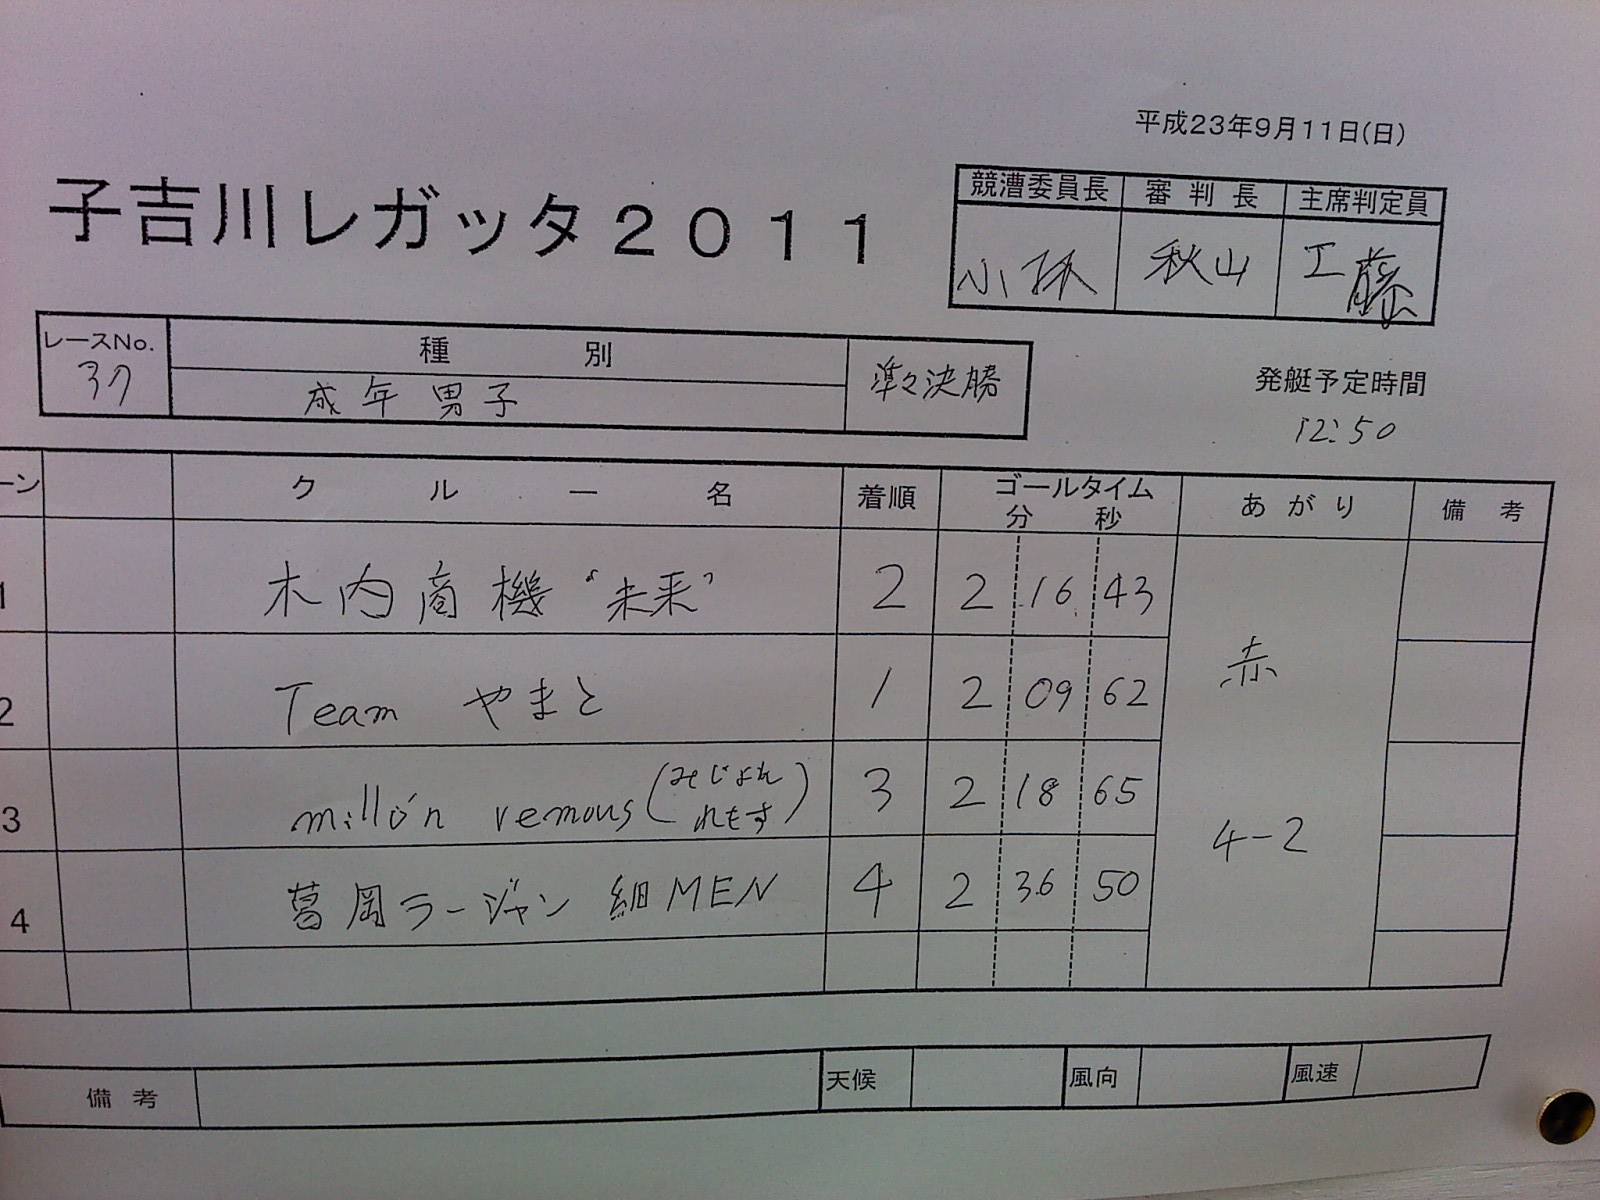 平成23年9月11日(日)
子吉川レガッタ2011
競漕委員長 審判長 主席判定員
小林 秋山 工藤
レースNo. 種別 準々決勝
37 成年男子
発艇予定時間
12:50
ーン クルー名 着順 ゴールタイム あがり 備考
分 秒
1 木内商機“未来” 2 2 16 43
赤
2 Team やまと 1 2 09 62
3 millón remous(みじょん れもす) 3 2 18 65
4-2
4 葛岡ラージャン 細MEN 4 2 36 50
備考 天候 風向 風速